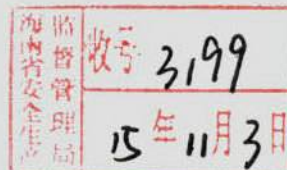 海南省安全生产
监督管理局
收号 3199
15年11月3日